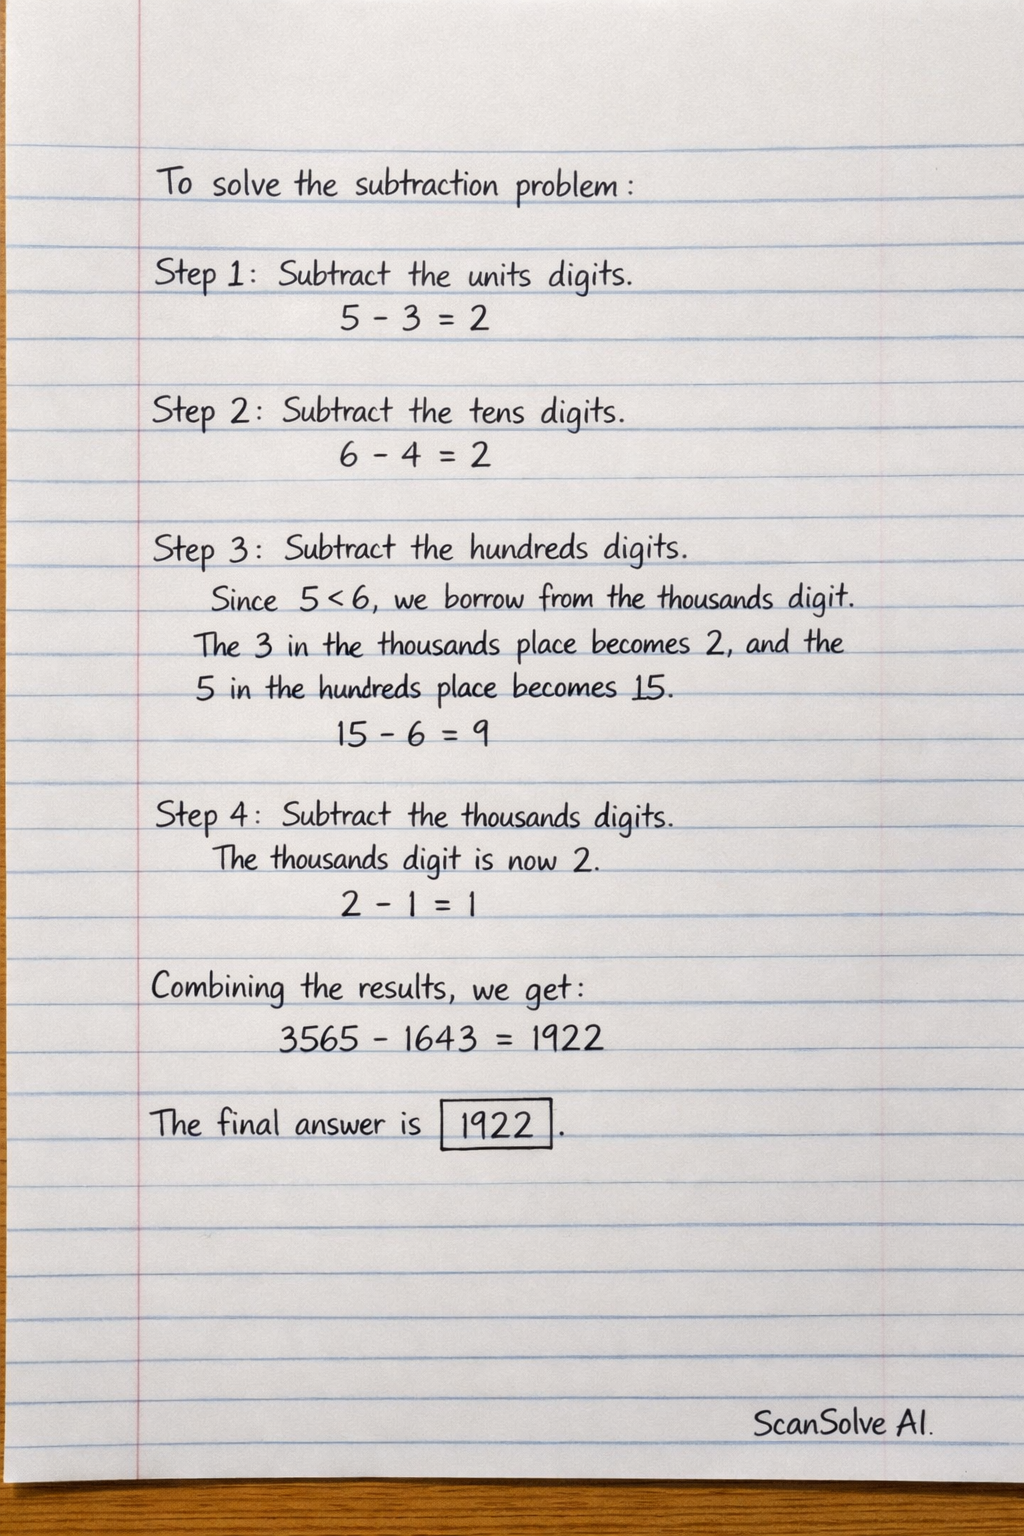 To solve the subtraction problem:
Step 1: Subtract the units digits.
5 - 3 = 2
Step 2: Subtract the tens digits.
6 - 4 = 2
Step 3: Subtract the hundreds digits.
Since 5 < 6, we borrow from the thousands digit.
The 3 in the thousands place becomes 2, and the
5 in the hundreds place becomes 15.
15 - 6 = 9
Step 4: Subtract the thousands digits.
The thousands digit is now 2.
2 - 1 = 1
Combining the results, we get:
3565 - 1643 = 1922
The final answer is 1922.
ScanSolve AI.